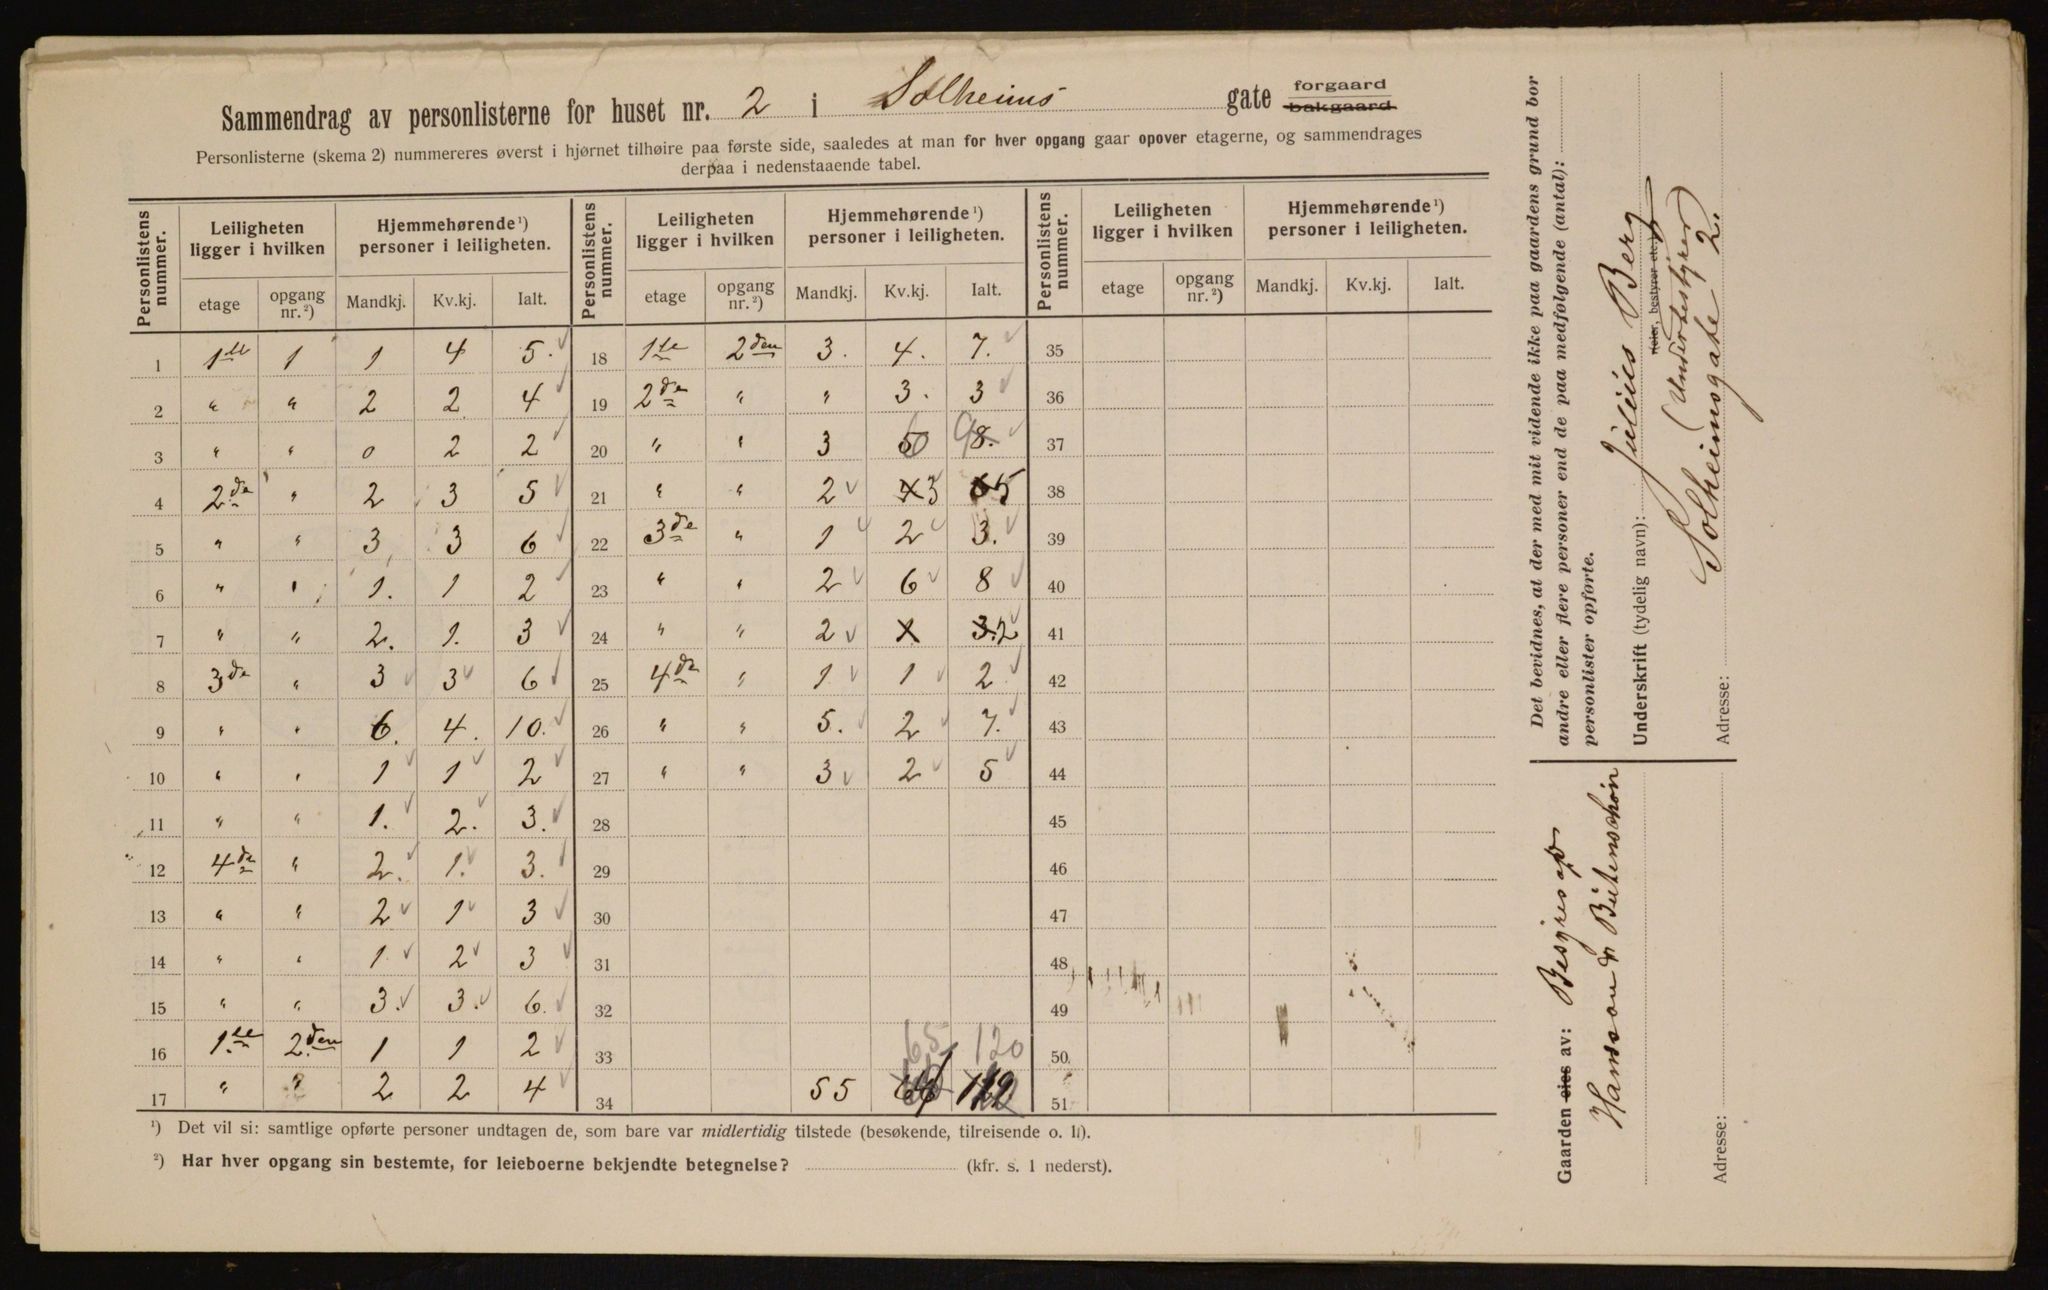 Sammendrag av personlisterne for huset nr. 2 i Solheims gate forgaard
bakgaard
Personlisterne (skema 2) nummereres øverst i hjørnet tilhøire paa første side, saaledes at man for hver opgang gaar opover etagerne, og sammendrages
derpaa i nedenstaaende tabel.
Personlistens nummer. Leiligheten ligger i hvilken Hjemmehørende ¹) personer i leiligheten. Personlistens nummer. Leiligheten ligger i hvilken Hjemmehørende ¹) personer i leiligheten. Personlistens nummer. Leiligheten ligger i hvilken Hjemmehørende ¹) personer i leiligheten.
etage opgang nr. ²) Mandkj. Kv.kj. Ialt. etage opgang nr. ²) Mandkj. Kv.kj. Ialt. etage opgang nr. ²) Mandkj. Kv.kj. Ialt.
1 1ste 1 1 4 5. 18 1ste 2den 3. 4. 7. 35
2 " " 2 2 4 19 2de " " 3. 3 36
3 " " 0 2 2 20 " " 3 6 9 8. 37
4 2de " 2 3 5 21 " " 2 3 5 38
5 " " 3 3 6 22 3de " 1 2 3. 39
6 " " 1. 1 2 23 " " 2 6 8 40
7 " " 2. 1. 3 24 " " 2 x 3. 2 41
8 3de " 3 3 6 25 4de " 1 1 2 42
9 " " 6. 4. 10. 26 " " 5. 2 7. 43
10 " " 1 1 2 27 " " 3 2 5 44
11 " " 1. 2. 3. 28 45
12 4de " 2. 1. 3. 29 46
13 " " 2 1 3 30 47
14 " " 1 2 3 31 48
15 " " 3. 3. 6. 32 49
16 1.ste 2.den 1 1 2 33 65 120 50
17 " " 2 2 4 34 55 51
¹) Det vil si: samtlige opførte personer undtagen de, som bare var midlertidig tilstede (besøkende, tilreisende o. l.).
²) Har hver opgang sin bestemte, for leieboerne bekjendte betegnelse? (kfr. s. 1 nederst).
Det bevidnes, at der med mit vidende ikke paa gaardens grund bor
andre eller flere personer end de paa medfølgende (antal):
personlister opførte.
Underskrift (tydelig navn): Julius Berg
(eier, bestyrer etc.)
(Underbestyrer)
Adresse: Solheimsgate 2.
Gaarden eies av: Besyres af
Hansson & Bütenschön
Adresse: